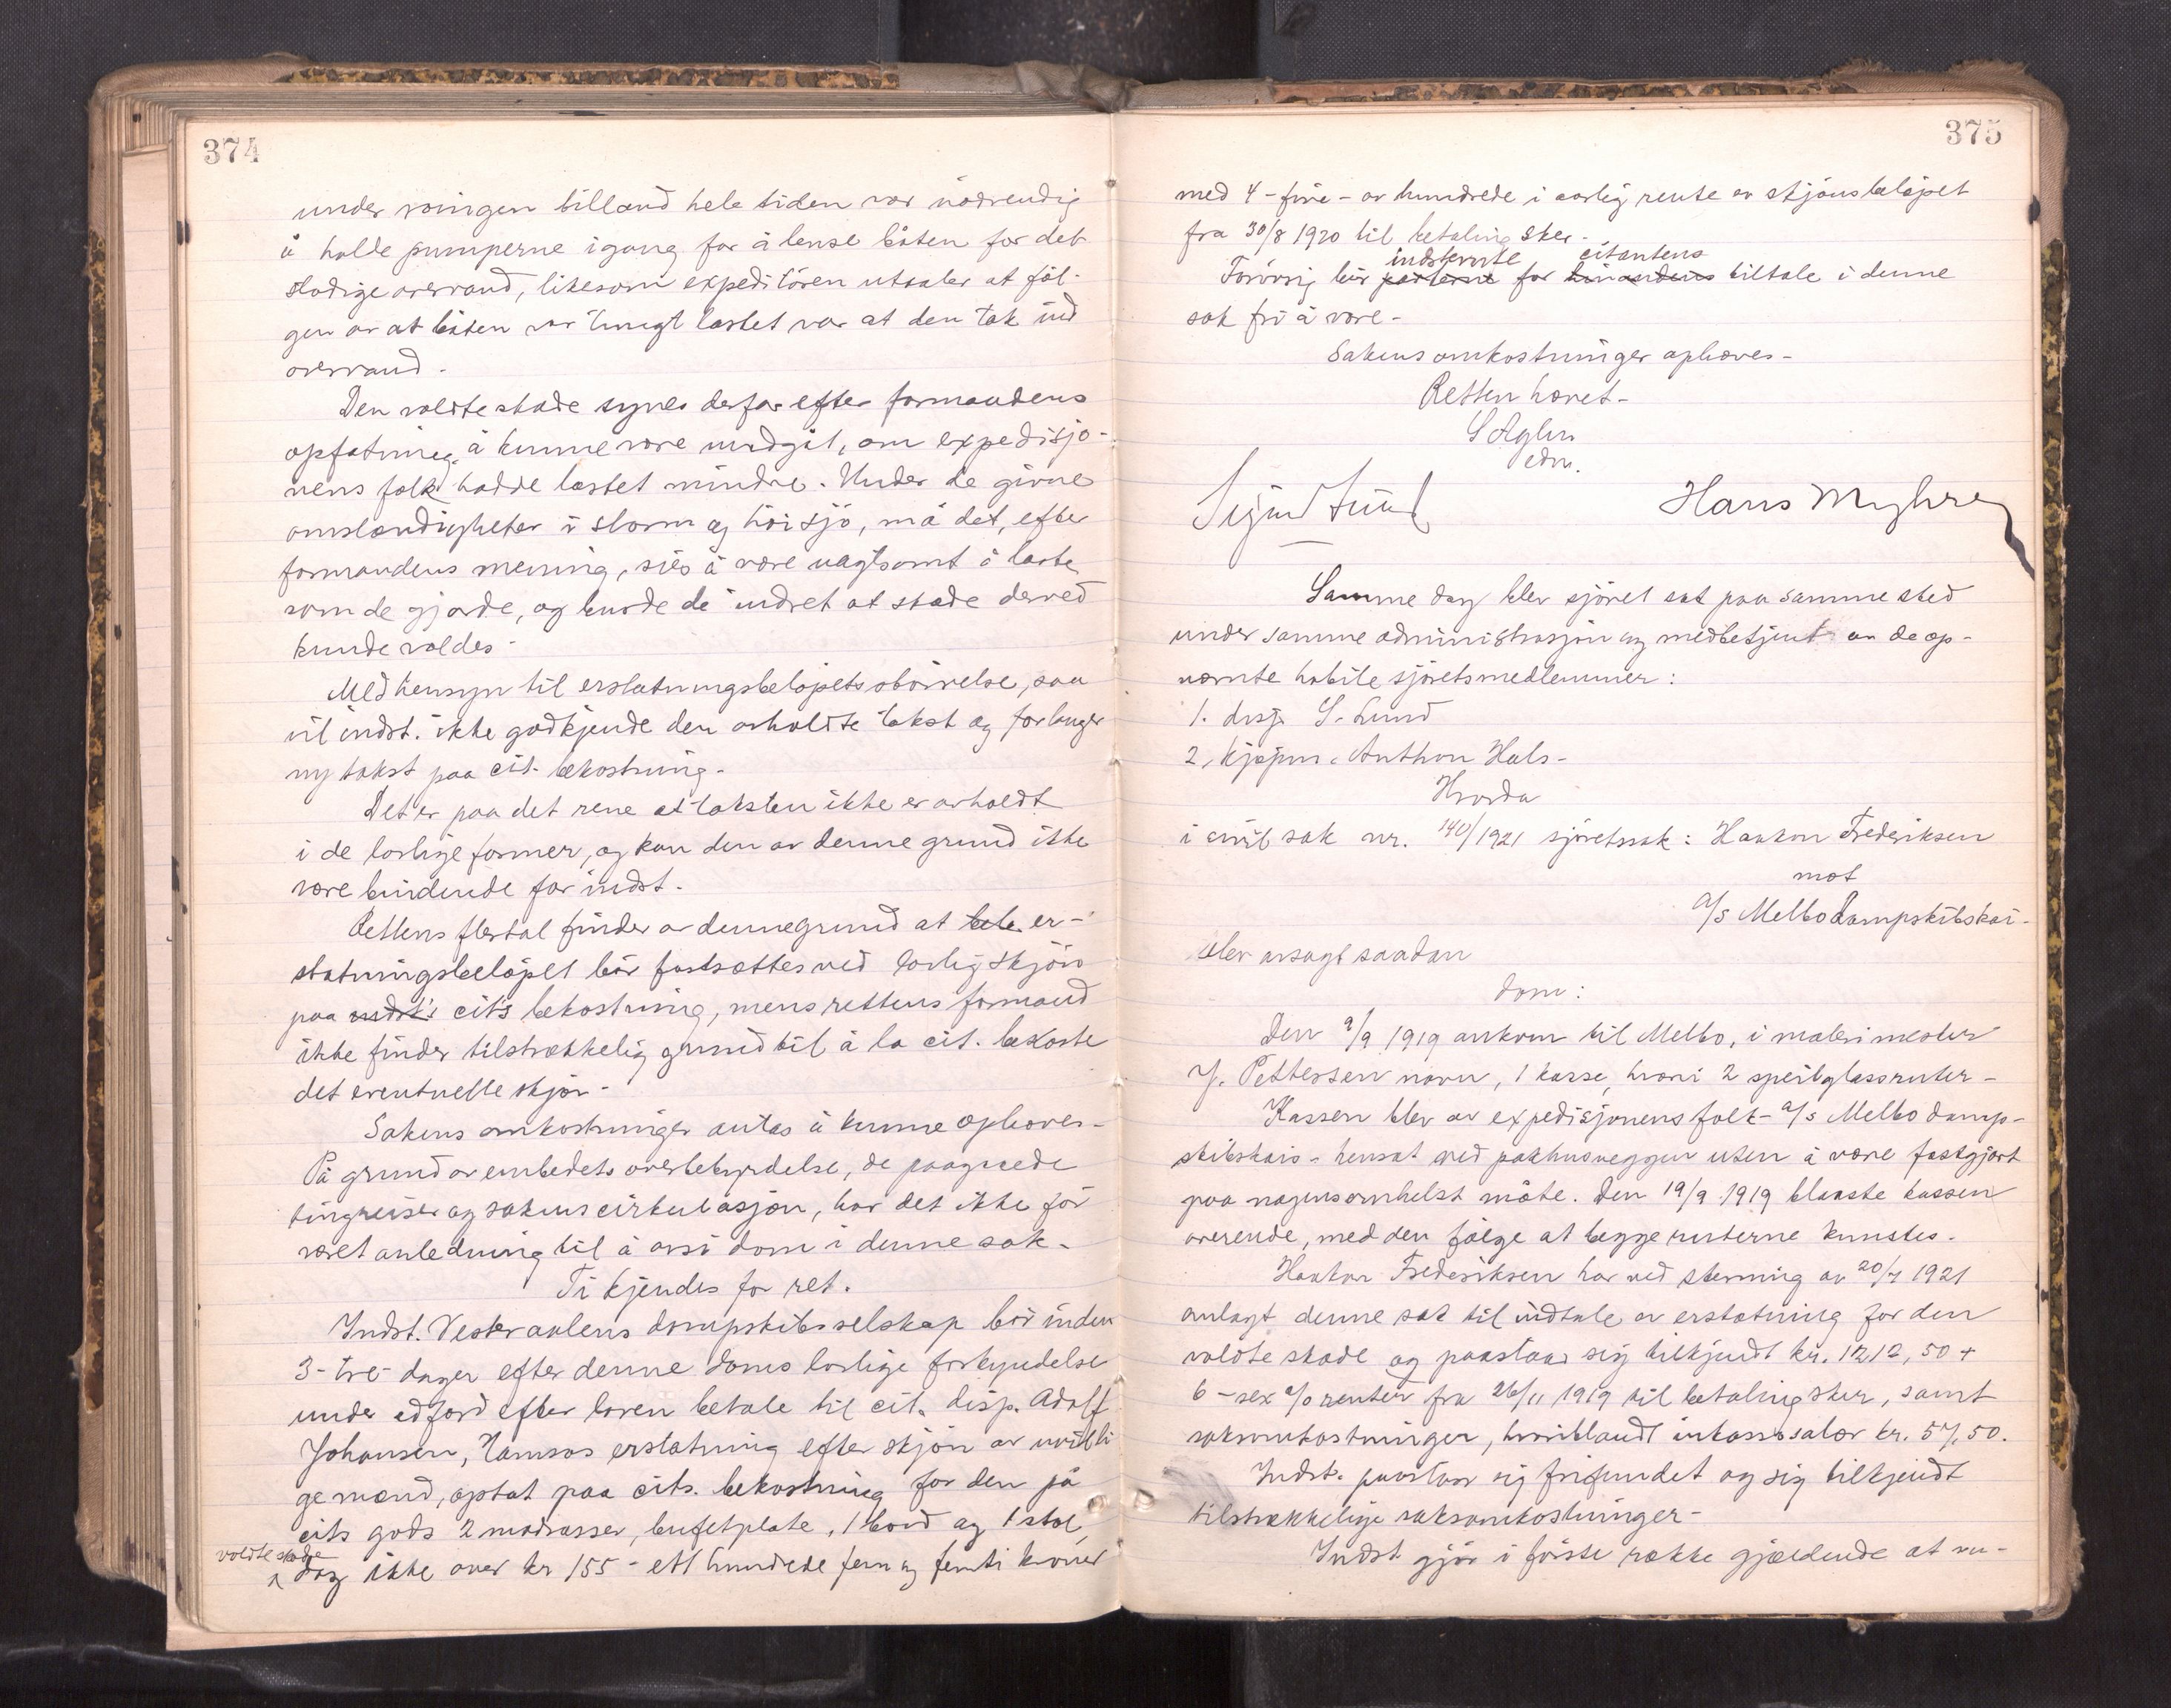 374
under roingen tilland hele tiden var nödvendig
å holde pumperne igang for å lense båten for det
stadige overvand, likesom expeditören uttaler at föl-
gen av at båten var tungt lastet var at den tok ind
overvand.
Den voldte skade synes derfor efter formandens
opfatning å kunne være undgåt, om expedisjo-
nens folk hadde lastet mindre. Under de givne
omstændigheter i storm og höi sjö, må det, efter
formandens mening, sies å være uagtsomt å laste
som de gjorde, og burde de indset at skade derved
kunde voldes.
Med hensyn til erstatningsbelöpets störrelse, saa
vil indst. ikke godkjende den avholdte takst og forlanger
ny takst paa cit. bekostning.
Det er paa det rene at taksten ikke er avholdt
i de lovlige former, og kan den av denne grund ikke
være bindende for indst.
Rettens flertal finder av denne grund at er-
statningsbelöpet bör fastsættes ved lovlig skjön
paa indst's cit's bekostning, mens rettens formand
ikke finder tilstrækkelig grund til å la cit. bekoste
det eventuelle skjön.
Sakens omkostninger antas å kunne ophæves.
På grund av embedets overbebyrdelse, de paagaaede
tingreiser og sakens cirkulasjon, har det ikke för
været anledning til å avsi dom i denne sak.
Ti kjendes for ret.
Indst. Vesteraalens dampskibsselskap bör inden
3 - tre - dager efter denne doms lovlige forkyndelse
under adfærd efter loven betale til cit. disp. Adolf
Johansen, Namsos erstatning efter skjön av uvilli-
ge mænd, optat paa cits. bekostning for den på
cits gods 2 madrasser, bufetplate, 1 bord og 1 stol
voldte skade
dog ikke over kr 155 - ett hundrede fem og femti kroner
375
med 4 - fire - av hundrede i aarlig rente av skjönsbelöpet
fra 30/8 1920 til betaling sker.
indstevnte citantens
Forövrig bör parterne for hinandens tiltale i denne
sak fri å være -
Sakens omkostninger ophæves -
Retten hævet -
edm.
Sigurd Lund Hans Myhre
Samme dag blev sjöret sat paa samme sted
under samme administrasjon og medbetjent av de op-
nævnte habile sjöretsmedlemmer:
1. disp. S. Lund
2, kjöpm. Anthon Hals -
Hvorda
i civil sak nr. 140/1921 sjöretssak: Haakon Frederiksen
mot
a/s Melbo Dampskibskai -
blev avsagt saadan
dom:
Den 9/9 1919 ankom til Melbo, i malermester
J. Pettersen navn, 1 kasse, hvori 2 speilglassruter -
Kassen blev av expedisjonens folk - a/s Melbo damp-
skibskais - hensat ved pakhusveggen uten å være fastgjort
paa nogensomhelst måte. Den 19/9 1919 blaaste kassen
overende, med den fölge at begge ruterne knustes.
Haakon Frederiksen har ved stevning av 20/7 1921
anlagt denne sak til indtale av erstatning for den
voldte skade og paastaar sig tilkjendt kr. 1212,50 +
6 - sex % renter fra 26/11 1919 til betaling sker, samt
saksomkostninger, hvoriblandt inkassosalær kr. 57,50.
Indst. paastaar sig frifundet og sig tilkjendt
tilstrækkelige saksomkostninger -
Indst. gjör i förste række gjældende at ru-